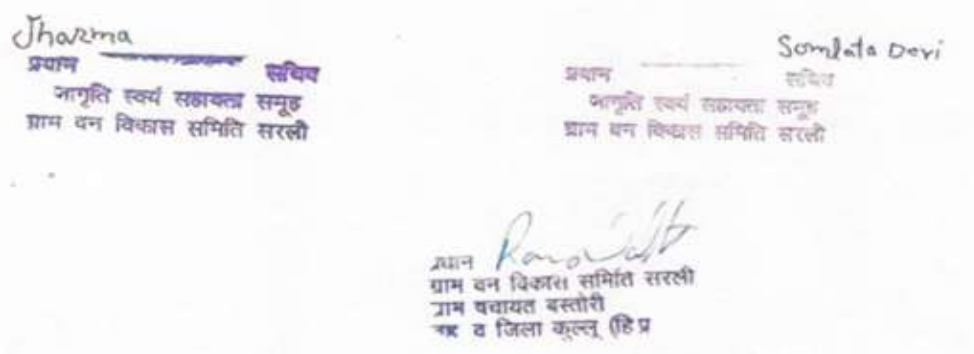 Jharma
प्रधान सचिव
जागृति स्वयं सहायता समूह
ग्राम वन विकास समिति सरली
Somlata Devi
प्रधान सचिव
जागृति स्वयं सहायता समूह
ग्राम वन विकास समिति सरली
प्रधान
ग्राम वन विकास समिति सरली
ग्राम पंचायत बस्तोरी
व जिला कुल्लू (हि प्र